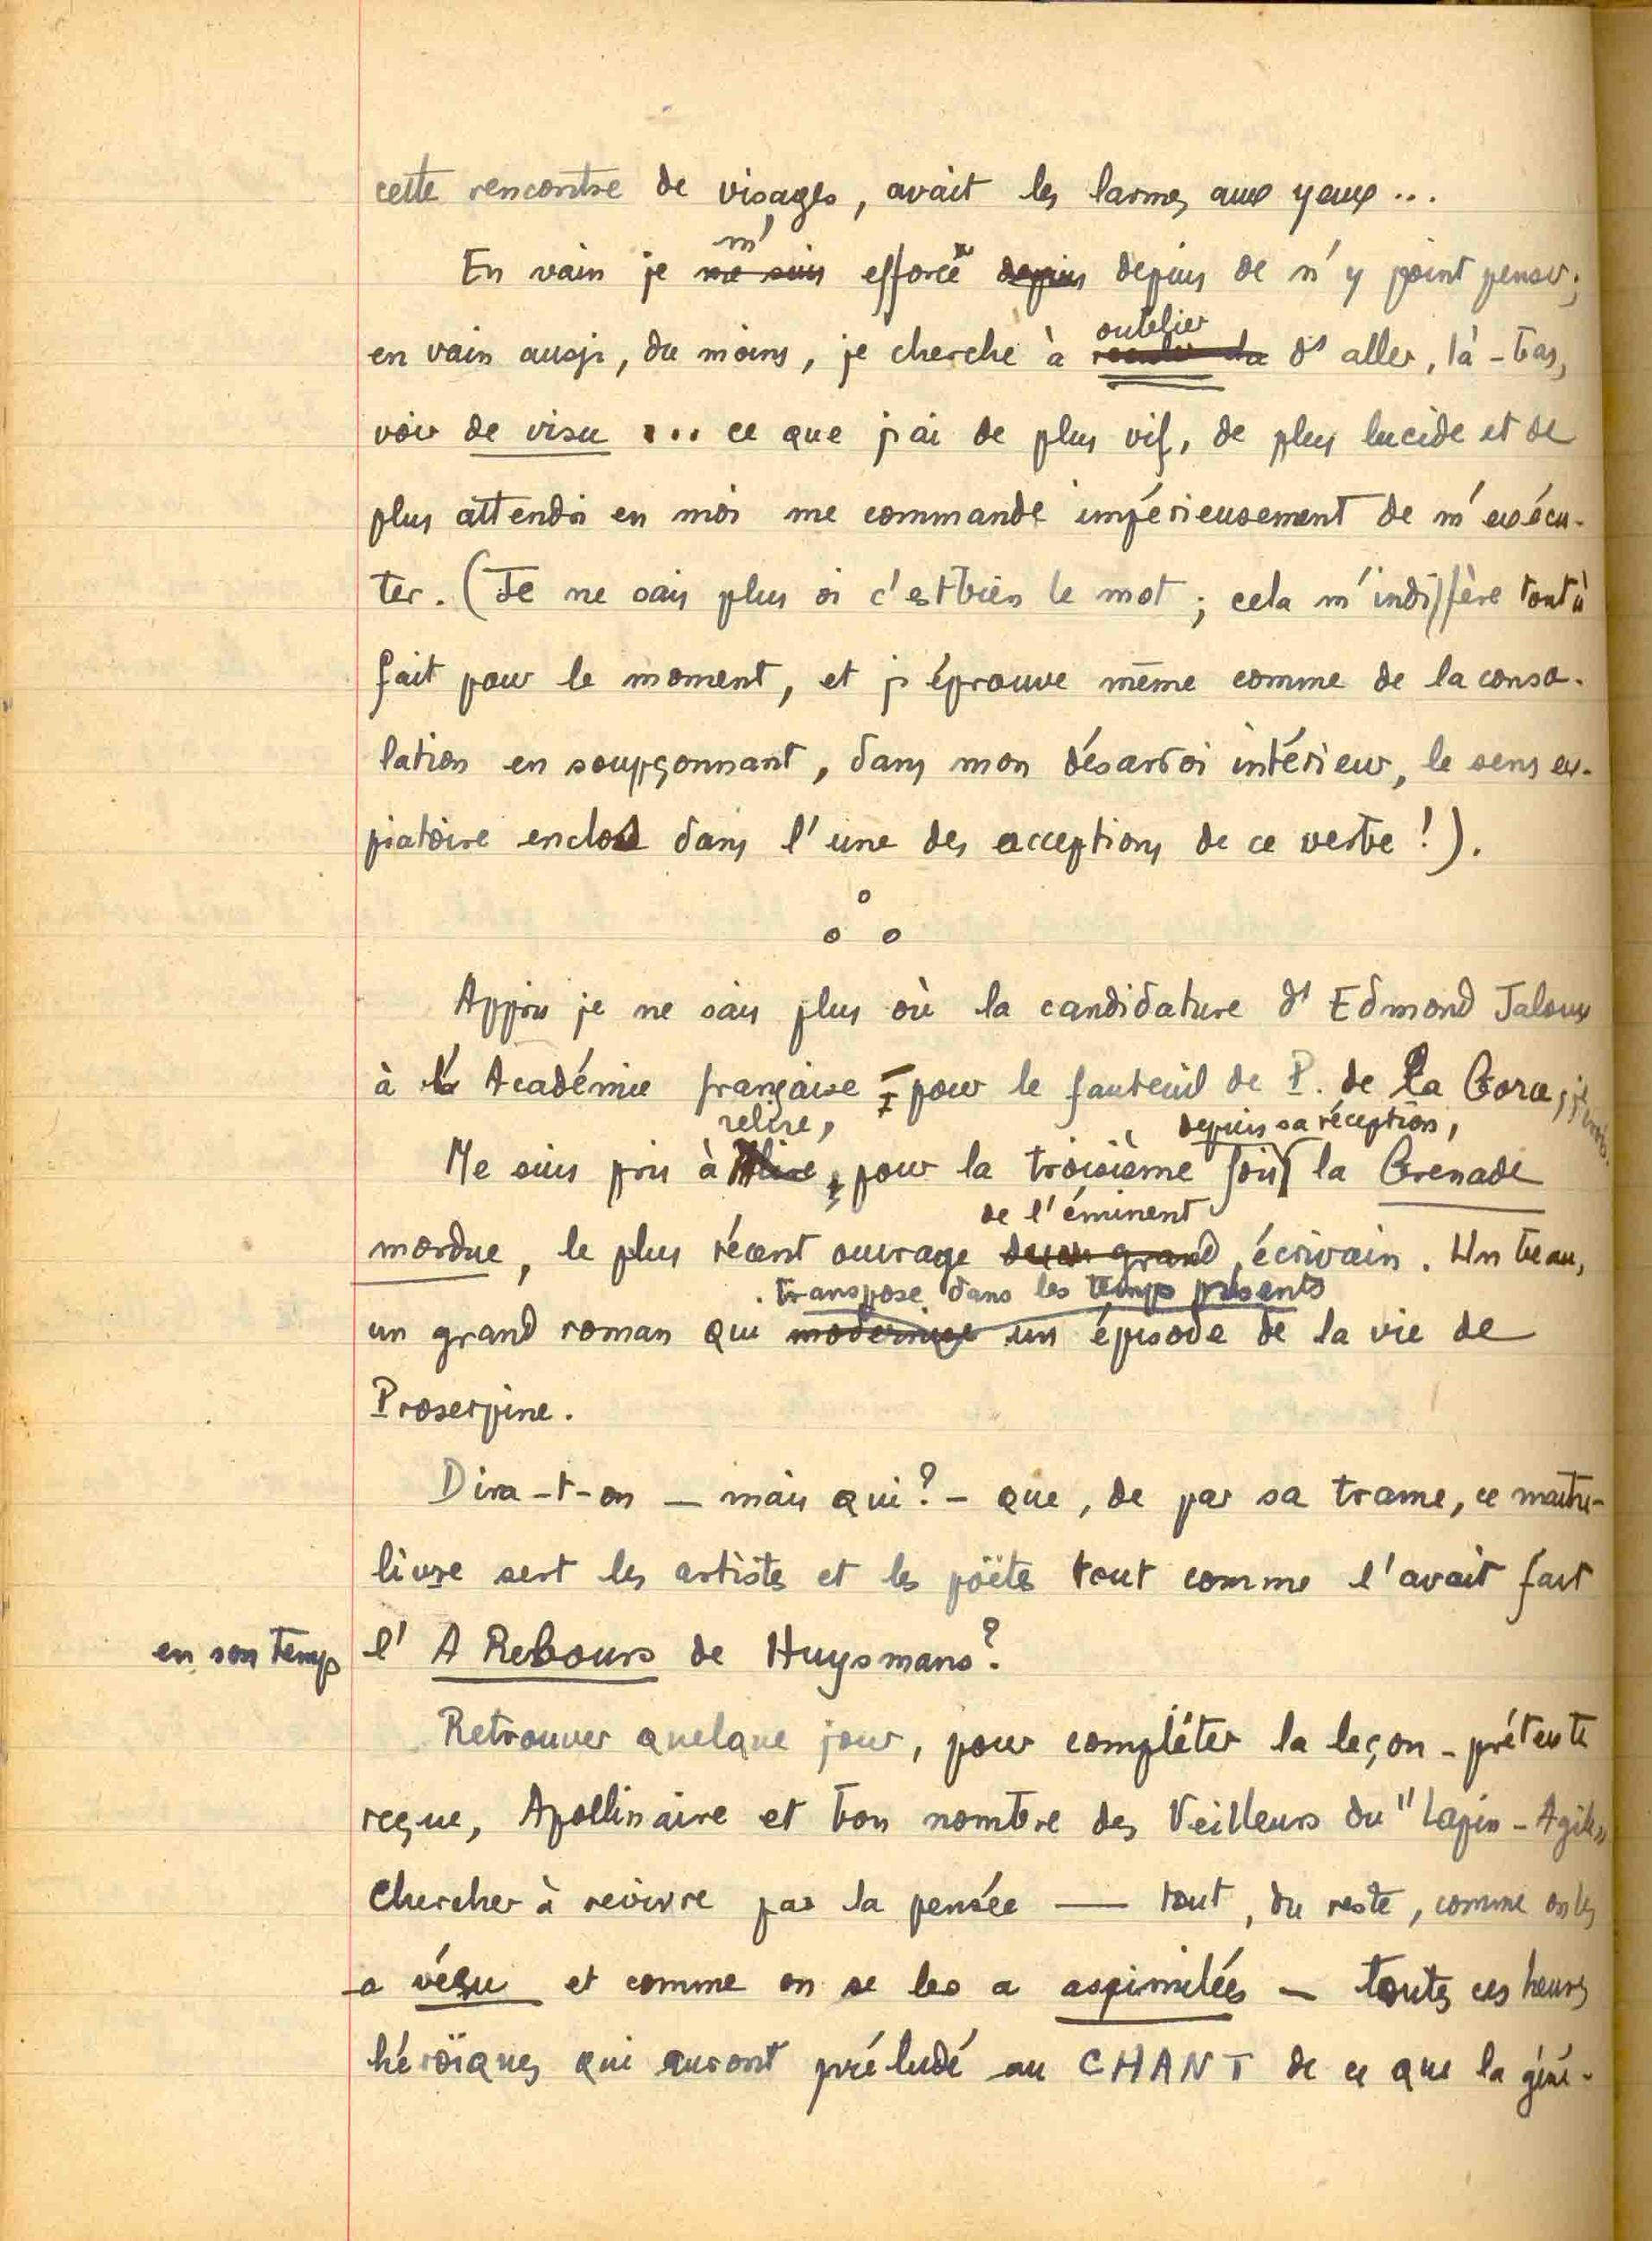 cette rencontre de visages, avait les larmes aux yeux...
En vain je m' me suis efforcé depuis depuis de n'y point penser;
en vain aussi, du moins, je cherche à oublier d'aller, là-bas,
voir de visu ... ce que j'ai de plus vif, de plus lucide et de
plus attendri en moi me commande impérieusement de m'exécu-
ter. (Je ne sais plus si c'est bien le mot ; cela m'indiffère tout à
fait pour le moment, et j'éprouve même comme de la conso-
lation en soupçonnant, dans mon désarroi intérieur, le sens ex-
piatoire enclos dans l'une des acceptions de ce verbe !).
Appris je ne sais plus où la candidature d'Edmond Jaloux
à l'Académie française - pour le fauteuil de P. de La Gorce, je crois.
relire, depuis sa réception,
Me suis pris à lire, pour la troisième fois la Grenade
de l'éminent
mordue, le plus récent ouvrage du grand écrivain. Un beau,
transpose dans les temps présents
un grand roman qui modernise un épisode de la vie de
Proserpine.
Dira-t-on — mais qui ? — que, de par sa trame, ce maître-
livre sert les artistes et les poëtes tout comme l'avait fait
en son temps l' A Rebours de Huysmans ?
Retrouver quelque jour, pour compléter la leçon-prétexte
reçue, Apollinaire et bon nombre des Veilleurs du "Lapin-Agile"
Chercher à revivre par la pensée — tout, du reste, comme on les
a vécu et comme on se les a assimilées — toutes ces heures
héroïques qui auront préludé au CHANT de ce que la géné-